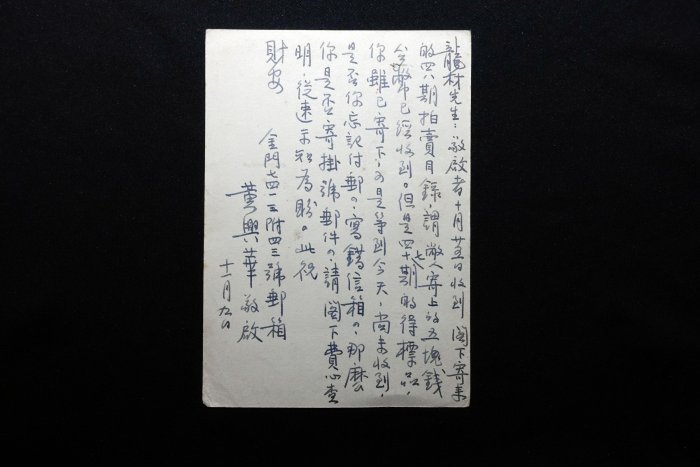 龍材先生：敬啟者十月廿五日收到 閣下寄來
的四八期拍賣目錄，謂敝人寄上的五塊錢
台幣已經收到。但是四十七期的得標品，
你雖已寄下，可是等到今天，尚未收到，
是否你忘記付郵？寫錯信箱？那麼
你是否寄掛號郵件？請 閣下費心查
明，從速示知為盼。此祝
財安
金門七四一三附四三號郵箱
黃興華 敬啟
十一月九日